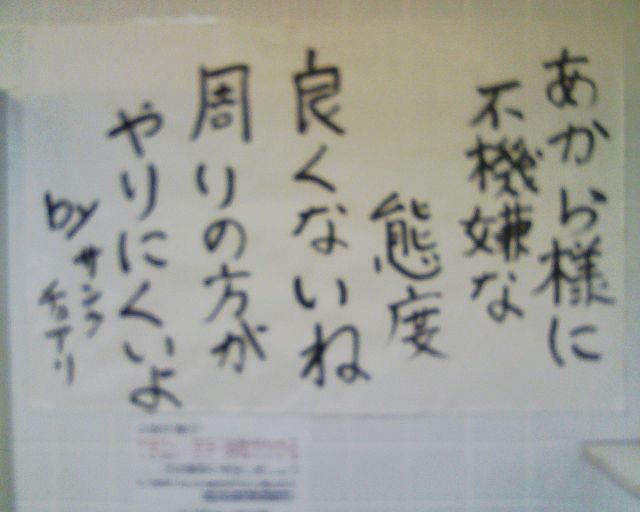 あから様に
不機嫌な
態度
良くないね
周りの方が
やりにくいよ
by サンク
チュアリ